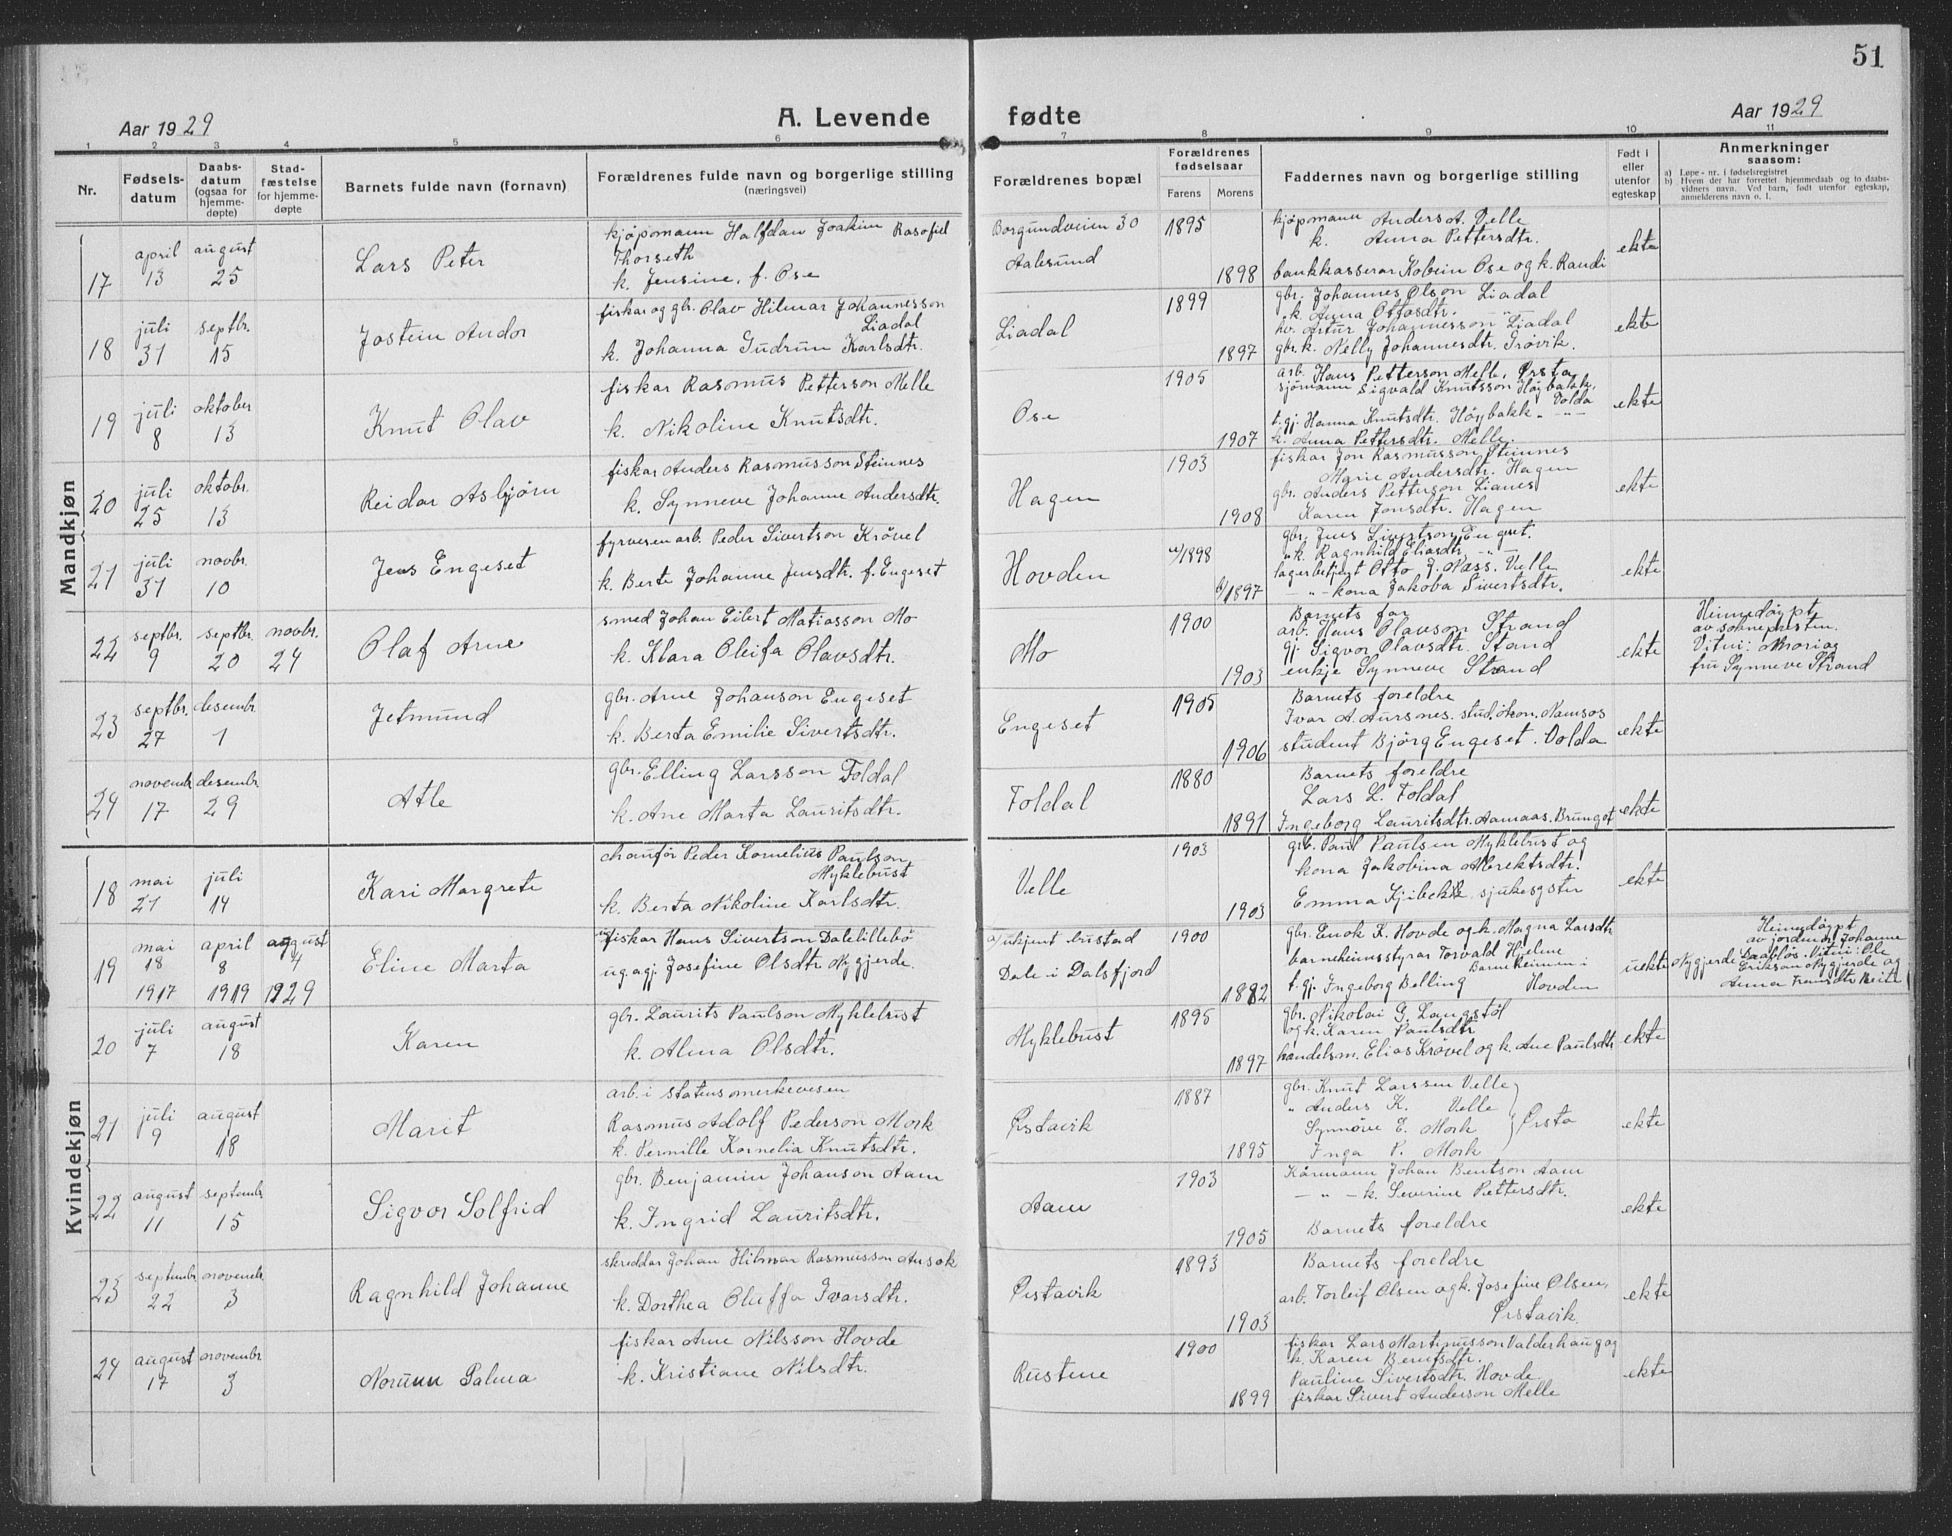 51
Aar 1929
A. Levende fødte
Aar 1929
1 2 3 4 5 6 7 8 9 10 11
Nr.
Fødsels-
datum
Daabs-
datum
(ogsaa for
hjemme-
døpte)
Stad-
fæstelse
for hjemme-
døpte
Barnets fulde navn (fornavn)
Forældrenes fulde navn og borgerlige stilling
(næringsvei)
Forældrenes bopæl
Forældrenes
fødselsaar
Farens Morens
Faddernes navn og borgerlige stilling
Født i
eller
utenfor
egteskap
Anmerkninger
saasom:
a) Løpe-nr. i fødselsregistret
b) Hvem der har forrettet hjemmedaab og to daabs-
vidners navn. Ved barn, født utenfor egteskap,
anmelderens navn o. l.
Mandkjøn
17
april
13
august
25
Lars Peter
kjøpmann Halfdan Joakim
Thorseth
k. Jensine, f. Ose
Borgundveien 30
Aalesund
1895
1898
kjøpmann Anders A. Velle
k. Anna Pettersdtr.
bankkasserar Kobein Ose og k. Randi
ekte
18
juli
31
septbr.
15
Jostein Andor
fiskar og gbr. Olav Hilmar Johannesson
Liadal
k. Johanna Gudrun Karlsdtr.
Liadal
1899
1897
gbr. Johannes Olson Liadal
k. Anna Ottosdtr. "
hv. Artur Johannesson Liadal
gbr. k. Nelly Johannesdtr. Trøvik.
ekte
19
juli
8
oktober
13
Knut Olav
fiskar Rasmus Petterson Melle
k. Nikoline Knutsdtr.
Ose
1905
1907
arb. Hans Petterson Melle, Ørsta
sjømann Sigvald Knutsson Høybakk,
Volda
t. gj. Hanna Knutsdtr. Høybakk. - " -
k. Anna Pettersdtr. Melle.
ekte
20
juli
25
oktobr.
13
Reidar Asbjørn
fiskar Anders Rasmusson Steinnes
k. Synneve Johanne Andersdtr.
Hagen
1903
1908
fiskar Jon Rasmusson Steinnes
Marie Andersdtr. Hagen
gbr. Anders Petterson Lianes
Karen Jonsdtr. Hagen
ekte
21
juli
31
novbr.
10
Jens Engeset
fyrvesenarb. Peder Sivertson Krøvel
k. Berte Johanne Jensdtr. f. Engeset
Hovden
1898
1897
gbr. Jens Sivertson Engeset.
" k. Ragnhild Eliasdtr. - " -
lagerbetjent Otto J. Næss. Velle
- " - kona Jakoba Sivertsdtr.
ekte
22
septbr.
9
septbr.
20
novbr.
24
Olaf Arne
smed Johan Eilert Matiasson Mo
k. Klara Oleifa Olavsdtr.
Mo
1900
1903
Barnets far
arb. Hans Olavson Strand
gj. Sigvor Olavsdtr. Stand
enkje Synneve Strand
ekte
Heimedøypt
av soknepresten.
Vitni: Moriog
fru Synneve Strand
23
septbr.
27
desembr
1
Jetmund
gbr. Arne Johanson Engeset
k. Berta Emilie Sivertsdtr.
Engeset
1905
1906
Barnets foreldre
Ivar A. Aursnes. stud. økon. Namsos
student Bjørg Engeset. Volda
ekte
24
novembr
17
desembr
29
Atle
gbr. Elling Larsson Foldal
k. Ane Marta Lauritsdtr.
Foldal
1880
1891
Barnets foreldre
Lars L. Foldal
Ingeborg Lauritsdtr. Aamaas. Brunget
ekte
Kvindekjøn
18
mai
21
juli
14
Kari Margrete
chaufør Peder Kornelius Paulson
Myklebust
k. Berta Nikoline Karlsdtr.
Velle
1903
1903
grb. Paul Paulsen Myklebust og
kona Jakobina Albrektsdtr.
Emma Kjibekk sjukesyster
ekte
19
mai
18
1917
april
8
1919
august
4
1929
Eline Marta
fiskar Hans Sivertson Dalelillebø
ugagj. Josefine Olsdtr. Nygjerde.
a/ ukjent bustad
Dale i Dalsfjord
1900
1882
gbr. Enok K. Hovde og k. Magna Larsdtr
barneheimsstyrar Torvald Hjelme
Barneheimen i
t. gj. Ingeborg Belling Hovden
uekte
Heimedøypt
av jordemor Johanne
Nygjerde Daabløs. Vitni: Ole
Erikson Nygjerde og
Anna Fransdtr. Reite
20
juli
7
august
18
Karen
gbr. Laurits Paulson Myklebust
k. Alma Olsdtr.
Myklebust
1895
1897
gbr. Nikolai G. Langstøl
og k. Karen Paulsdtr
handelsm. Elias Krøvel og k. Ane Paulsdtr
ekte
21
juli
9
august
18
Marit
arb. i statens merkevesen
Rasmus Adolf Pederson Mork
k. Pernille Kornelia Knutsdtr.
Ørstavik
1887
1895
gbr. Knut Larssen Velle
" Anders K. Velle
Synnøve E. Mork
Ørsta
Inga P. Mork
ekte
22
august
11
septembr
15
Sigvor Solfrid
gbr. Benjamin Johanson Aam
k. Ingrid Lauritsdtr.
Aam
1903
1905
Kårmann Johan Bentson Aam
- " - k. Severine Pettersdtr.
Barnets foreldre
ekte
23
septembr
22
novembr.
3
Ragnhild Johanne
skreddar Johan Hilmar Rasmusson Aasok
k. Dorthea Oluffa Ivarsdtr.
Ørstavik
1893
1903
Barnets foreldre
arb. Torleif Olsen og k. Josefine Olsen,
Ørstavik.
ekte
24
august
17
novembr
3
Norunn Palma
fiskar Arne Nilsson Hovde
k. Kristiane Nilsdtr.
Rustene
1900
1899
fiskar Lars Martinusson Valderhaug og
k. Karen Berntsdtr.
Pauline Sivertsdtr. Hovde
fiskar Sivert Anderson Melle
ekte